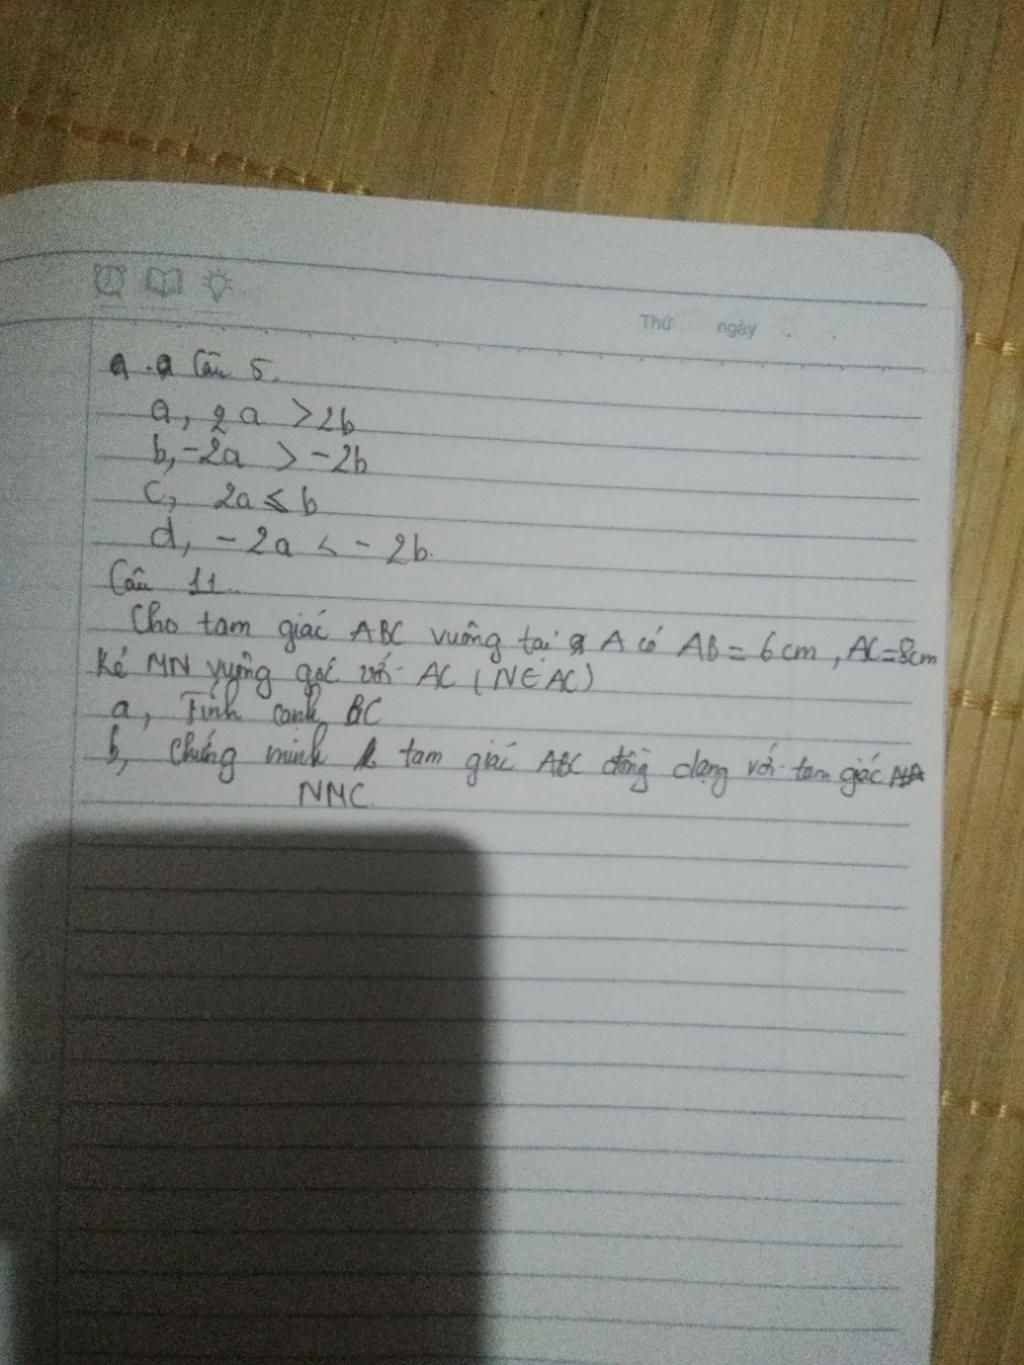 Thứ ngày
Câu 5.
a, 2a > 2b
b, -2a > -2b
c, 2a ≤ b
d, -2a < -2b.
Câu 11.
Cho tam giác ABC vuông tại A có AB = 6cm, AC = 8cm
Kẻ MN vuông góc với AC (N ∈ AC)
a, Tính cạnh BC
b, Chứng minh tam giác ABC đồng dạng với tam giác
NMC.